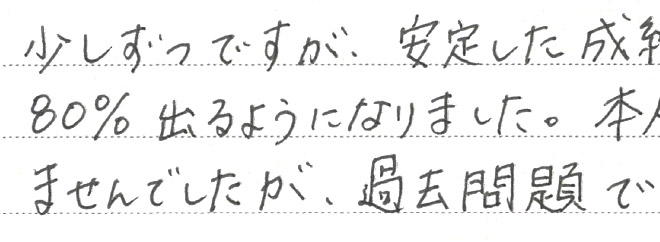 少しずつですが、安定した成
80% 出るようになりました。本
ませんでしたが、過去問題で